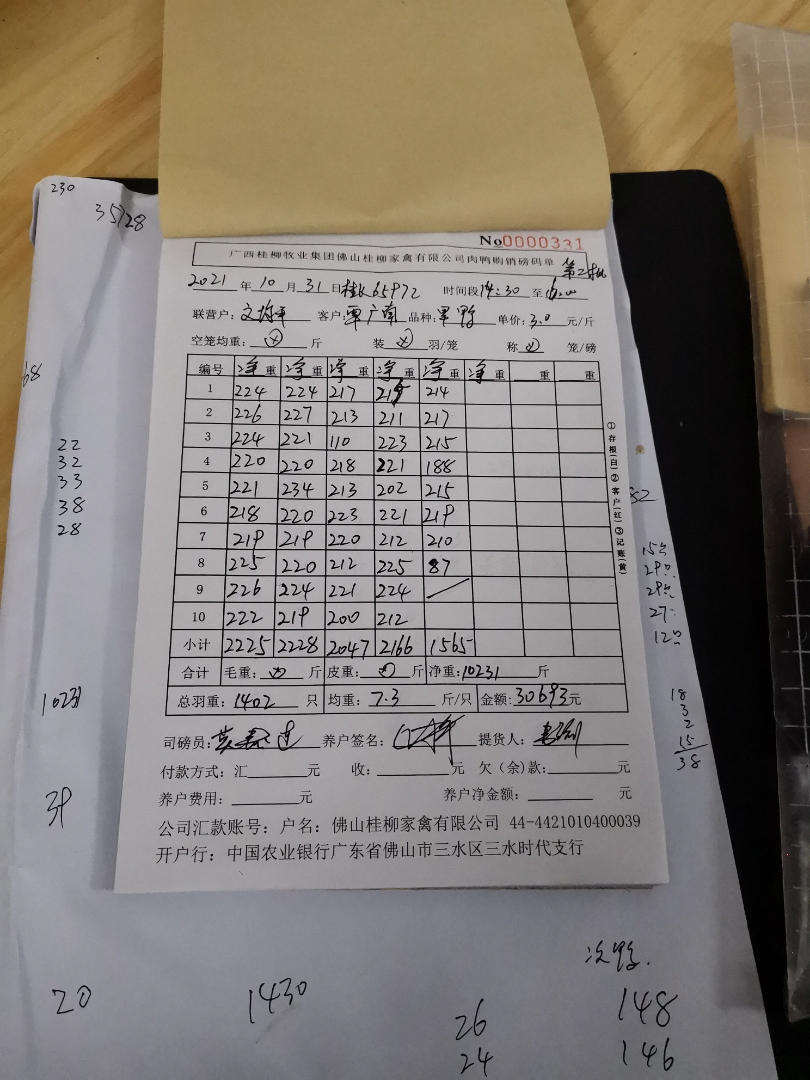 230
35728
No0000331
广西桂柳牧业集团佛山桂柳家禽有限公司肉鸭购销磅码单
2021年10月31日 65972 时间段14:30至
联营户: 客户: 广南 品种: 单价:3.0元/斤
空笼均重: 斤 装 羽/笼 称 笼/磅
编号 净重 净重 净重 净重 净重 净重 重 重
1 224 224 217 214
2 226 227 213 211 217
3 224 221 110 223 215
4 220 220 218 221 188
5 221 234 213 202 215
6 218 220 223 221 219
7 219 219 220 212 210
8 225 220 212 225 87
9 226 224 221 224
10 222 219 200 212
小计 2225 2228 2047 2166 1565
合计 毛重: 斤 皮重: 斤 净重:10231 斤
总羽重:1402只 均重:7.3斤/只 金额:30693元
司磅员: 养户签名: 提货人:
付款方式:汇元 收:元 欠(余)款:元
养户费用:元 养户净金额:元
公司汇款账号:户名:佛山桂柳家禽有限公司 44-4421010400039
开户行:中国农业银行广东省佛山市三水区三水时代支行
①存根(白)②客户(红)③记账(黄)
68
22
32
33
38
28
10231
39
32
15
29
29
27
12
18
3
2
15
38
次鸭.
20 1430 148
26
24 146